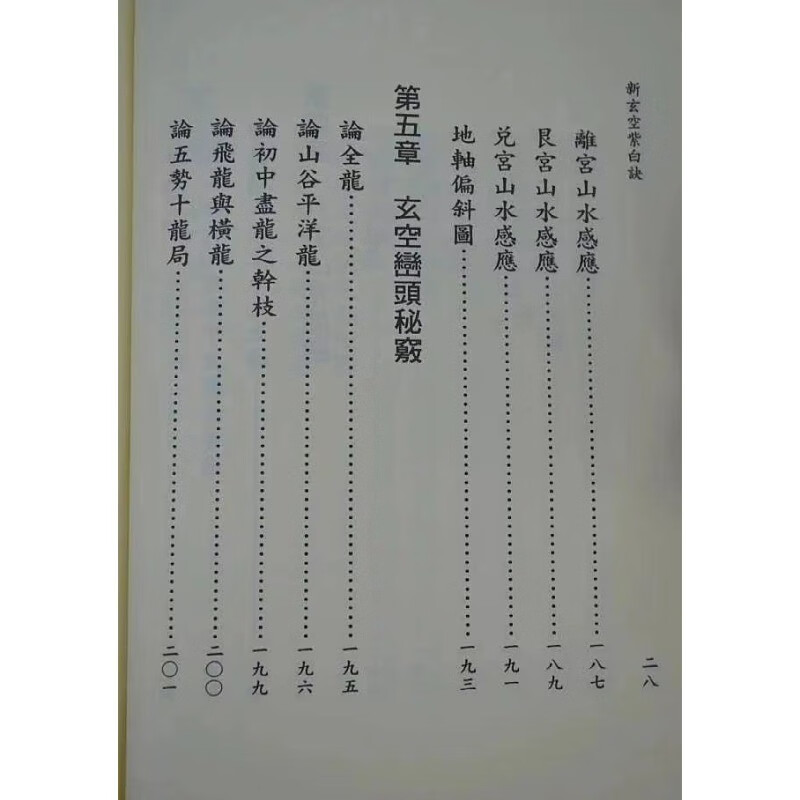 新玄空紫白訣
二八
離宮山水感應⋯⋯⋯⋯⋯⋯⋯⋯一八七
艮宮山水感應⋯⋯⋯⋯⋯⋯⋯⋯一八九
兌宮山水感應⋯⋯⋯⋯⋯⋯⋯⋯一九一
地軸偏斜圖⋯⋯⋯⋯⋯⋯⋯⋯一九三
第五章　玄空巒頭秘竅
論全龍⋯⋯⋯⋯⋯⋯⋯⋯一九五
論山谷平洋龍⋯⋯⋯⋯⋯⋯⋯⋯一九六
論初中盡龍之幹枝⋯⋯⋯⋯⋯⋯⋯⋯一九九
論飛龍與橫龍⋯⋯⋯⋯⋯⋯⋯⋯二〇〇
論五勢十龍局⋯⋯⋯⋯⋯⋯⋯⋯二〇一